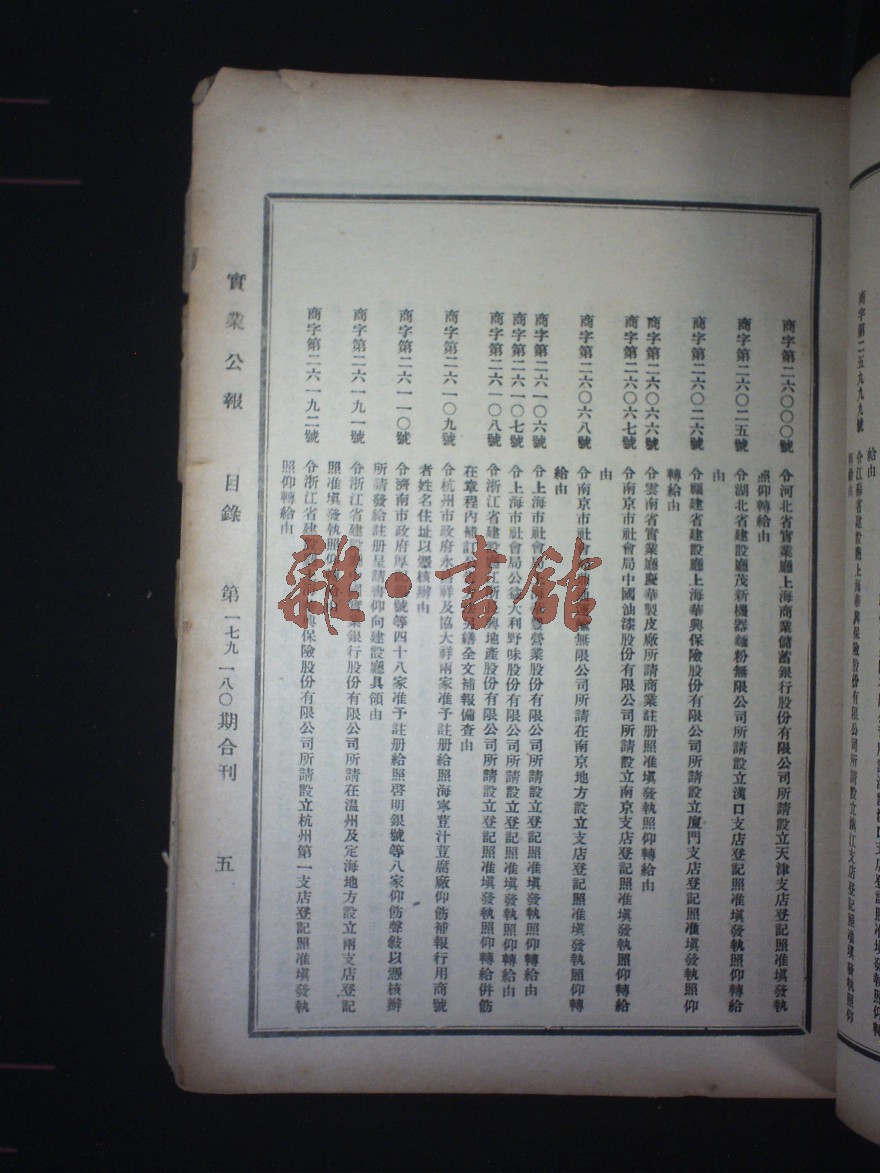 商字第二五九九九號
商字第二六〇〇〇號 令河北省實業廳上海商業儲蓄銀行股份有限公司所請設立天津支店登記照准塡發執
照仰轉給由
商字第二六〇二五號 令湖北省建設廳茂新機器麵粉無限公司所請設立漢口支店登記照准塡發執照仰轉給
由
商字第二六〇二六號 令福建省建設廳上海華興保險股份有限公司所請設立廈門支店登記照准塡發執照仰
轉給由
商字第二六〇六六號 令雲南省實業廳慶華製皮廠所請商業註册照准塡發執照仰轉給由
商字第二六〇六七號 令南京市社會局中國油漆股份有限公司所請設立南京支店登記照准塡發執照仰轉給
由
商字第二六〇六八號 令南京市社會局 無限公司所請在南京地方設立支店登記照准塡發執照仰轉
給由
商字第二六一〇六號 令上海市社會局上海 營業股份有限公司所請設立登記照准塡發執照仰轉給由
商字第二六一〇七號 令上海市社會局公 大利野味股份有限公司所請設立登記照准塡發執照仰轉給由
商字第二六一〇八號 令浙江省建設廳 地產股份有限公司所請設立登記照准塡發執照仰轉給併飭
在章程內補訂公 另繕全文補報備查由
商字第二六一〇九號 令杭州市政府永 祥及協大祥兩家准予註册給照海寧荳汁荳腐廠仰飭補報行用商號
者姓名住址以憑核辦由
商字第二六一一〇號 令濟南市政府厚記 號等四十八家准予註册給照啓明銀號等八家仰飭聲敍以憑核辦
所請發給註册呈請書仰向建設廳具領由
商字第二六一九一號 令浙江省建設廳 業銀行股份有限公司所請在温州及定海地方設立兩支店登記
照准塡發執照仰 給由
商字第二六一九二號 令浙江省建設廳上海華興保險股份有限公司所請設立杭州第一支店登記照准塡發執
照仰轉給由
實業公報 目錄 第一七九一八〇期合刊 五
雜·書館